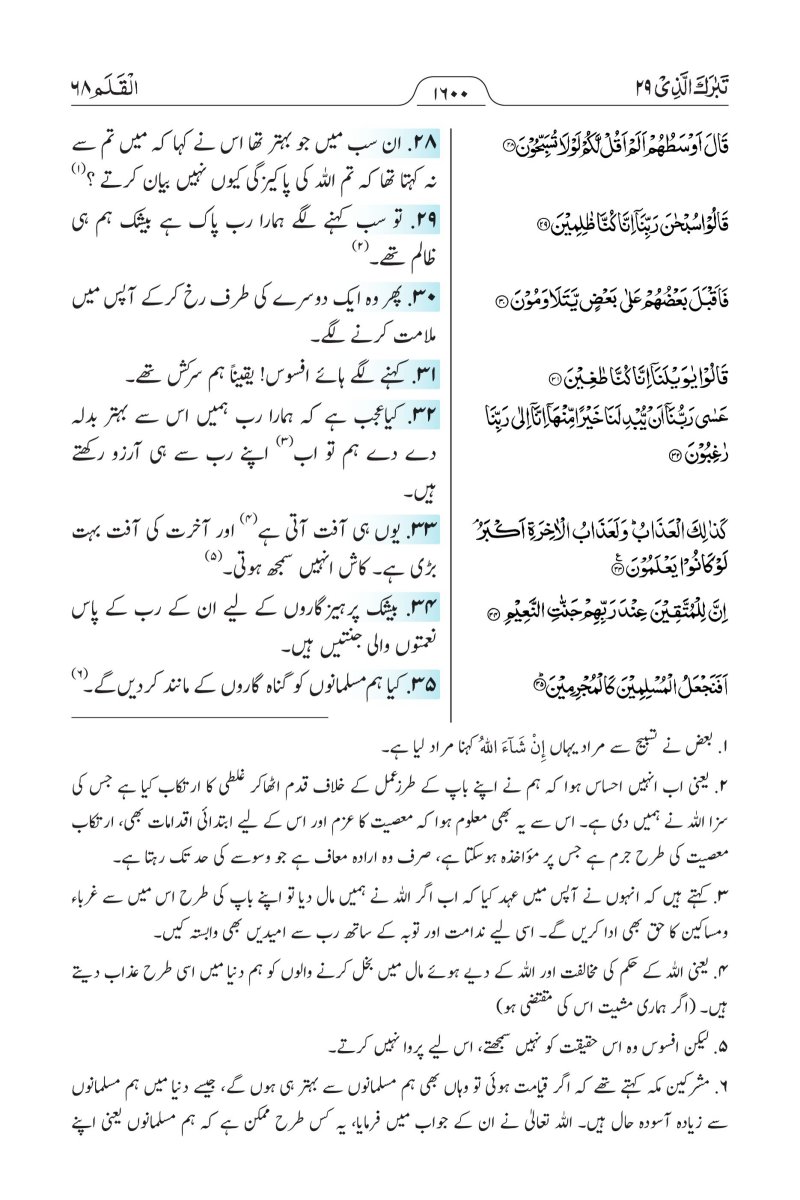 تَبٰرَكَ الَّذِىْ ٢٩
١٦٠٠
الْقَلَم ٦٨
قَالَ اَوْسَطُهُمْ اَلَمْ اَقُلْ لَّكُمْ لَوْلَا تُسَبِّحُوْنَ ۝٢٨
قَالُوْا سُبْحٰنَ رَبِّنَآ اِنَّا كُنَّا ظٰلِمِيْنَ ۝٢٩
فَاَقْبَلَ بَعْضُهُمْ عَلٰى بَعْضٍ يَّتَلَاوَمُوْنَ ۝٣٠
قَالُوْا يٰوَيْلَنَآ اِنَّا كُنَّا طٰغِيْنَ ۝٣١
عَسٰى رَبُّنَآ اَنْ يُّبْدِلَنَا خَيْرًا مِّنْهَآ اِنَّآ اِلٰى رَبِّنَا
رٰغِبُوْنَ ۝٣٢
كَذٰلِكَ الْعَذَابُ ؕ وَلَعَذَابُ الْاٰخِرَةِ اَكْبَرُ ۘ
لَوْ كَانُوْا يَعْلَمُوْنَ ۝٣٣
اِنَّ لِلْمُتَّقِيْنَ عِنْدَ رَبِّهِمْ جَنّٰتِ النَّعِيْمِ ۝٣٤
اَفَنَجْعَلُ الْمُسْلِمِيْنَ كَالْمُجْرِمِيْنَ ۝٣٥
۲۸. ان سب میں جو بہتر تھا اس نے کہا کہ میں تم سے
نہ کہتا تھا کہ تم اللہ کی پاکیزگی کیوں نہیں بیان کرتے؟(۱)
۲۹. تو سب کہنے لگے ہمارا رب پاک ہے بیشک ہم ہی
ظالم تھے۔(۲)
۳۰. پھر وہ ایک دوسرے کی طرف رخ کرکے آپس میں
ملامت کرنے لگے۔
۳۱. کہنے لگے ہائے افسوس! یقیناً ہم سرکش تھے۔
۳۲. کیا عجب ہے کہ ہمارا رب ہمیں اس سے بہتر بدلہ
دے دے ہم تو اب(۳) اپنے رب سے ہی آرزو رکھتے
ہیں۔
۳۳. یوں ہی آفت آتی ہے(۴) اور آخرت کی آفت بہت
بڑی ہے۔ کاش انہیں سمجھ ہوتی۔(۵)
۳۴. بیشک پرہیزگاروں کے لیے ان کے رب کے پاس
نعمتوں والی جنتیں ہیں۔
۳۵. کیا ہم مسلمانوں کو گناہ گاروں کے مانند کردیں گے۔(۶)
۱. بعض نے تسبیح سے مراد یہاں إِنْ شَآءَ اللهُ کہنا مراد لیا ہے۔
۲. یعنی اب انہیں احساس ہوا کہ ہم نے اپنے باپ کے طرزعمل کے خلاف قدم اٹھاکر غلطی کا ارتکاب کیا ہے جس کی
سزا اللہ نے ہمیں دی ہے۔ اس سے یہ بھی معلوم ہوا کہ معصیت کا عزم اور اس کے لیے ابتدائی اقدامات بھی، ارتکاب
معصیت کی طرح جرم ہے جس پر مؤاخذہ ہوسکتا ہے، صرف وہ ارادہ معاف ہے جو وسوسے کی حد تک رہتا ہے۔
۳. کہتے ہیں کہ انہوں نے آپس میں عہد کیا کہ اب اگر اللہ نے ہمیں مال دیا تو اپنے باپ کی طرح اس میں سے غرباء
ومساکین کا حق بھی ادا کریں گے۔ اسی لیے ندامت اور توبہ کے ساتھ رب سے امیدیں بھی وابستہ کیں۔
۴. یعنی اللہ کے حکم کی مخالفت اور اللہ کے دیے ہوئے مال میں بخل کرنے والوں کو ہم دنیا میں اسی طرح عذاب دیتے
ہیں۔ (اگر ہماری مشیت اس کی مقتضی ہو)
۵. لیکن افسوس وہ اس حقیقت کو نہیں سمجھتے، اس لیے پروا نہیں کرتے۔
۶. مشرکین مکہ کہتے تھے کہ اگر قیامت ہوئی تو وہاں بھی ہم مسلمانوں سے بہتر ہی ہوں گے، جیسے دنیا میں ہم مسلمانوں
سے زیادہ آسودہ حال ہیں۔ اللہ تعالیٰ نے ان کے جواب میں فرمایا، یہ کس طرح ممکن ہے کہ ہم مسلمانوں یعنی اپنے